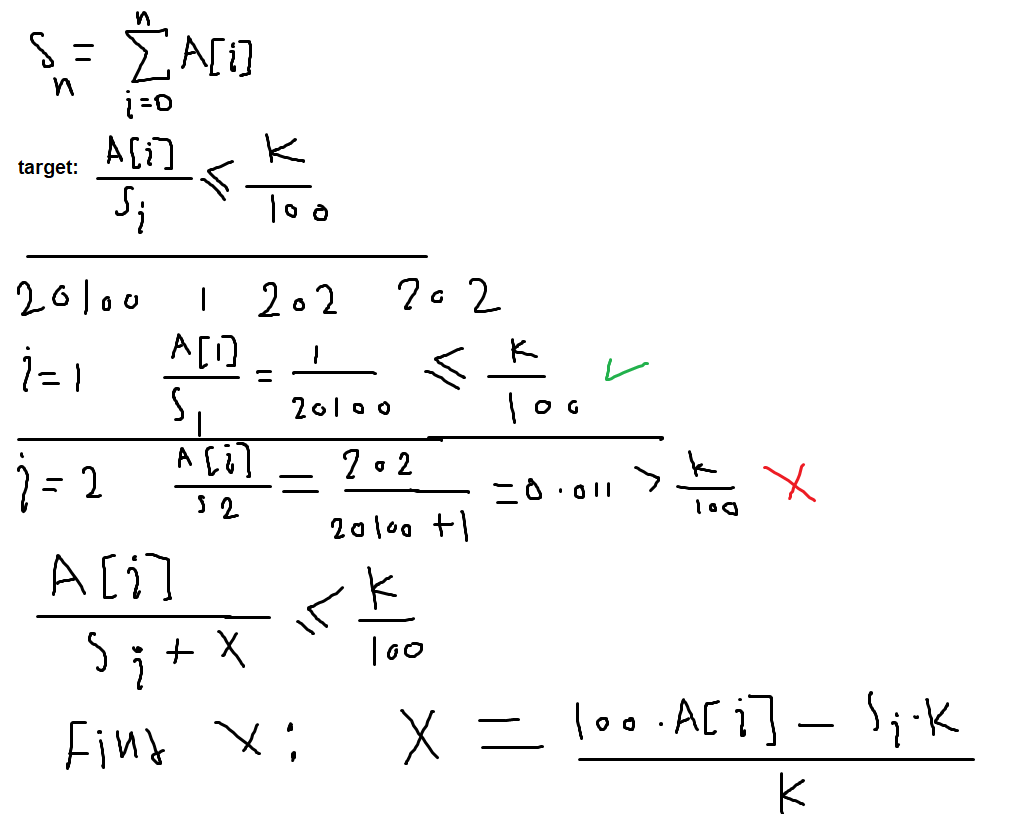 S_n = n ∑ i=0 A[i]
target: A[i] / S_i ≤ K / 100
20100 1 202 202
i=1 A[1] / S_1 = 1 / 20100 ≤ K / 100 ✓
i=2 A[i] / S_2 = 202 / 20100+1 = 0.011 > k / 100 X
A[i] / S_i + X ≤ K / 100
Find X: X = 100·A[i] – S_i·K / K